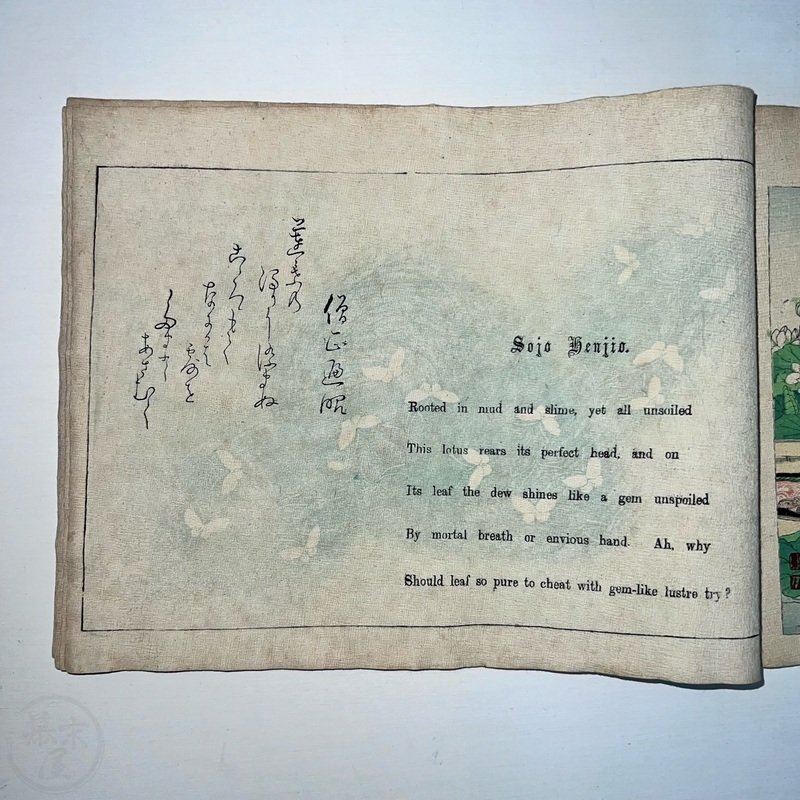 僧正遍昭
蓮葉乃
にこりにしまぬ
こゝろもて
なにかは
露を
あさむく
Sojo Henjio.
Rooted in mud and slime, yet all unsoiled
This lotus rears its perfect head, and on
Its leaf the dew shines like a gem unspoiled
By mortal breath or envious hand. Ah, why
Should leaf so pure to cheat with gem-like lustre try?
幕末屋